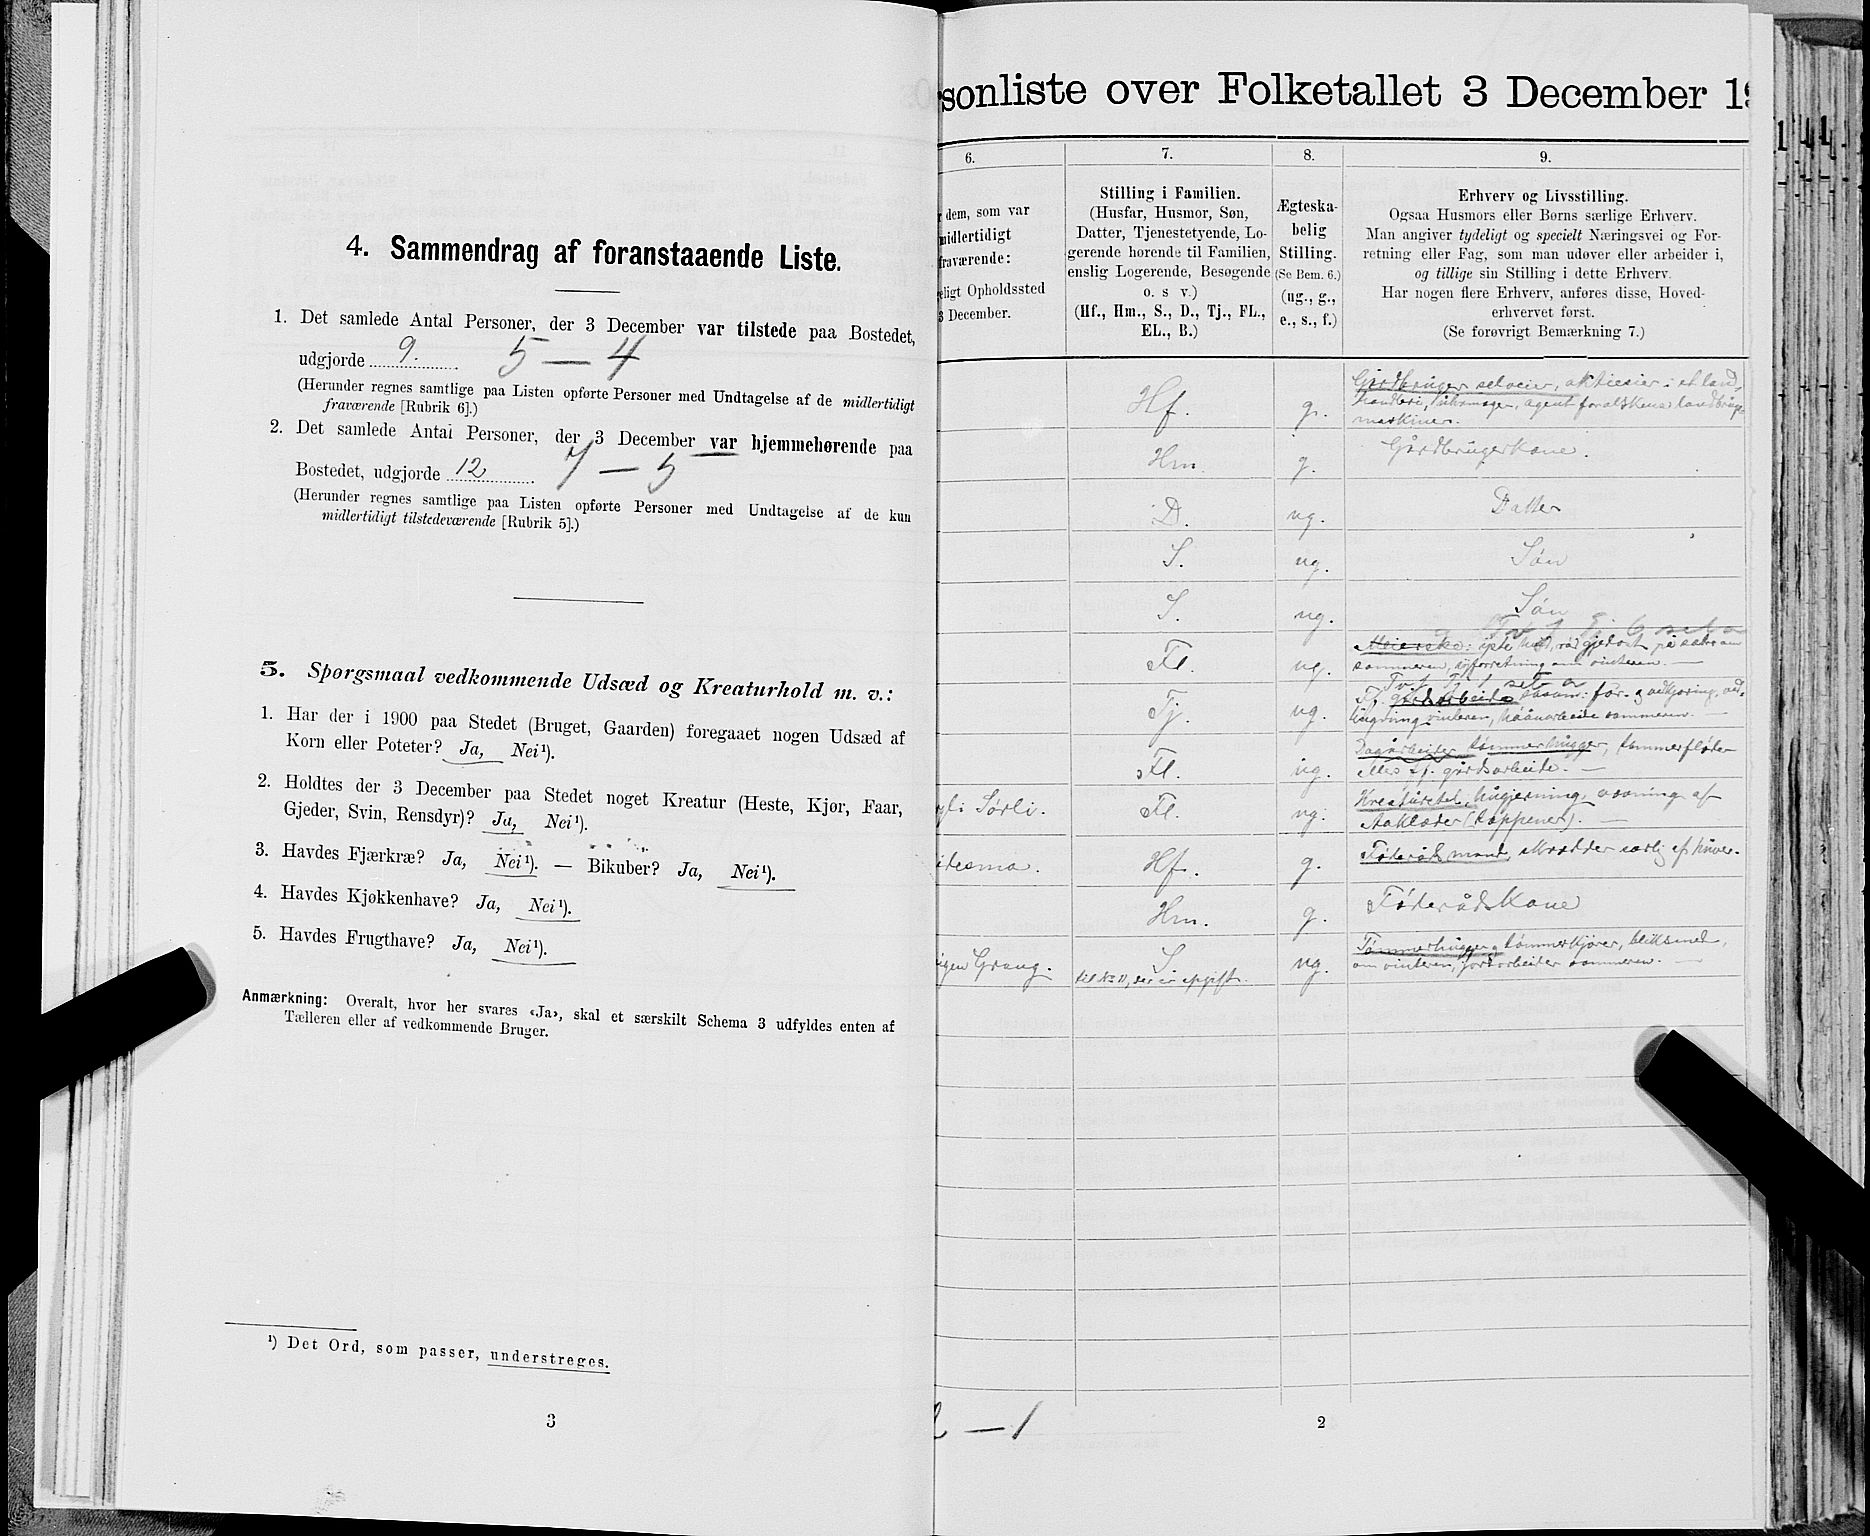 4. Sammendrag af foranstaaende Liste.
1. Det samlede Antal Personer, der 3 December var tilstede paa Bostedet,
udgjorde 9. 5 — 4
(Herunder regnes samtlige paa Listen opførte Personer med Undtagelse af de midlertidigt
fraværende [Rubrik 6].)
2. Det samlede Antal Personer, der 3 December var hjemmehørende paa
Bostedet, udgjorde 12 7 — 5
(Herunder regnes samtlige paa Listen opførte Personer med Undtagelse af de kun
midlertidigt tilstedeværende [Rubrik 5].)
5. Spørgsmaal vedkommende Udsæd og Kreaturhold m. v.:
1. Har der i 1900 paa Stedet (Bruget, Gaarden) foregaaet nogen Udsæd af
Korn eller Poteter? Ja, Nei¹).
2. Holdtes der 3 December paa Stedet noget Kreatur (Heste, Kjør, Faar,
Gjeder, Svin, Rensdyr)? Ja, Nei¹).
3. Havdes Fjærkræ? Ja, Nei¹). — Bikuber? Ja, Nei¹).
4. Havdes Kjøkkenhave? Ja, Nei¹).
5. Havdes Frugthave? Ja, Nei¹).
Anmærkning: Overalt, hvor her svares «Ja», skal et særskilt Schema 3 udfyldes enten af
Tælleren eller af vedkommende Bruger.
¹) Det Ord, som passer, understreges.
3
sonliste over Folketallet 3 December 19
6.
dem, som var
midlertidigt
fraværende:
ligt Opholdssted
3 December.
7.
Stilling i Familien.
(Husfar, Husmor, Søn,
Datter, Tjenestetyende, Lo-
gerende hørende til Familien,
enslig Logerende, Besøgende
o. s v.)
(Hf., Hm., S., D., Tj., FL.,
EL., B.)
8.
Ægteska-
belig
Stilling.
(Se Bem. 6.)
(ug., g.,
e., s., f.)
9.
Erhverv og Livsstilling.
Ogsaa Husmors eller Børns særlige Erhverv.
Man angiver tydeligt og specielt Næringsvei og For-
retning eller Fag, som man udøver eller arbeider i,
og tillige sin Stilling i dette Erhverv.
Har nogen flere Erhverv, anføres disse, Hoved-
erhvervet først.
(Se forøvrigt Bemærkning 7.)
Hf. g. Gårdbruger selveier, aktieeier i et land,
handleri, agent for alskens landbrugs
maskiner.
Hm. g. Gårdbrugerkone.
D. ug. Datter
S. ug. Søn
S. ug. Søn
Fl. ug. Meierske: gjedost på sæter om
sommeren, om vinteren. —
Tj. ug. Tj. gårdsarbeide såsom: for- og vedkjøring, ved-
hugning vinteren, håånarbeide sommeren. —
Fl. ug. Dagarbeider tømmerhugger, tømmerfløder
elles gårdsarbeide. —
Sørli. Fl. ug. Kreaturstel, vævning af
Aaklæder (tæppener). —
Hf. g. Føderåds mand, skrædder
Hm. g. Føderådskone
Grong. S. ug. Tømmerhugger og tømmerkjører, bliksmed,
til No 11, der er opgift. om vinteren, jordarbeider sommeren. —
2 — 1
2